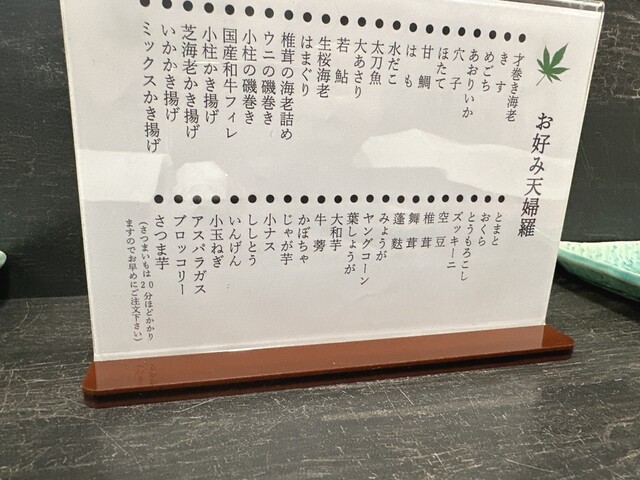 お好み天婦羅
才巻き海老
きす
めごち
あおりいか
穴子
ほたて
甘鯛
はも
水だこ
太刀魚
大あさり
若鮎
生桜海老
はまぐり
椎茸の海老詰め
ウニの磯巻き
小柱の磯巻き
国産和牛フィレ
小柱かき揚げ
芝海老かき揚げ
いかかき揚げ
ミックスかき揚げ
とまと
おくら
とうもろこし
ズッキーニ
空豆
椎茸
舞茸
蓬麩
みょうが
ヤングコーン
葉しょうが
大和芋
牛蒡
かぼちゃ
じゃが芋
小ナス
ししとう
いんげん
小玉ねぎ
アスパラガス
ブロッコリー
さつま芋
(さつまいもは20分ほどかかり
ますのでお早めにご注文下さい)